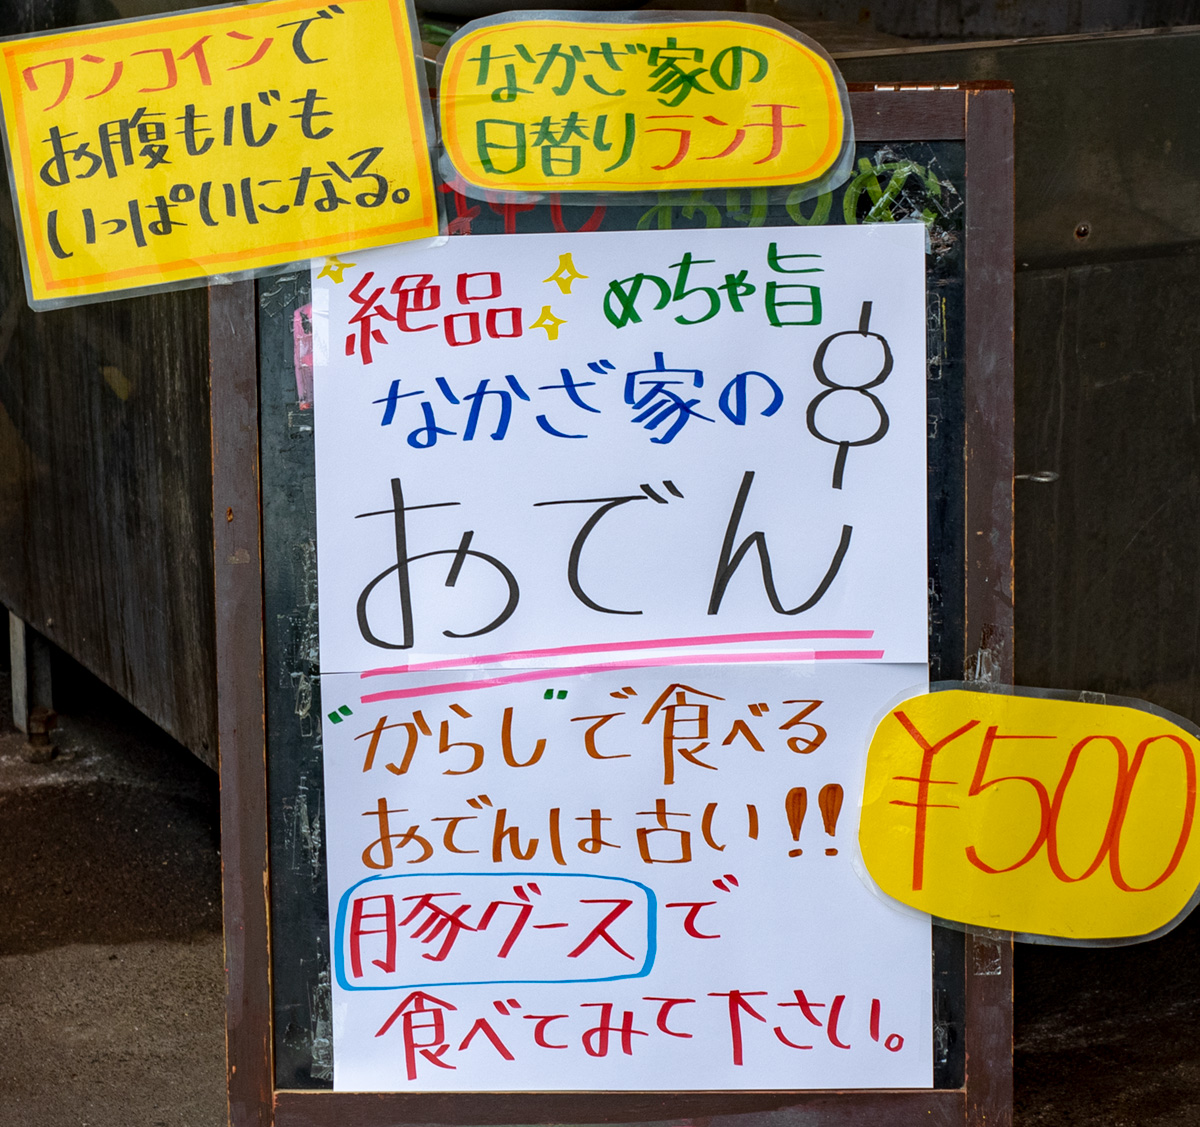 ワンコインで
お腹も心も
いっぱいになる。
なかざ家の
日替りランチ
絶品 めちゃ旨
なかざ家の
おでん
"からし"で食べる
おでんは古い!!
¥500
豚グースで
食べてみて下さい。